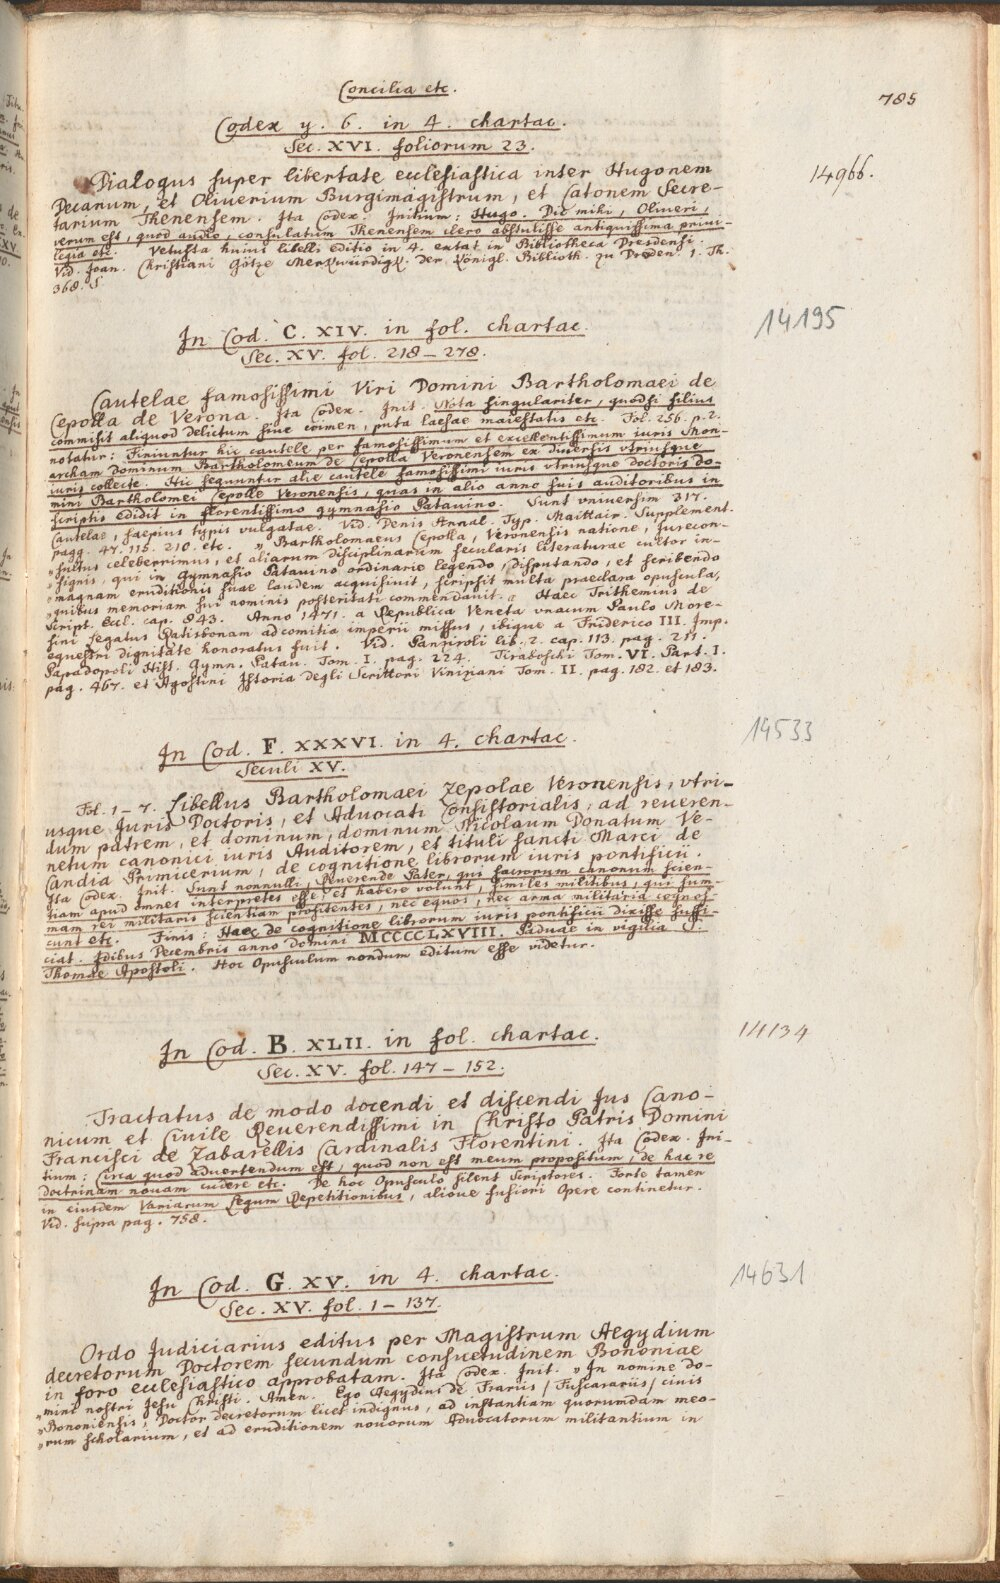 Concilia etc.
785
Codex y. 6. in 4. chartac.
Sec. XVI. foliorum 23.
14966.
Dialogus super libertate ecclesiastica inter Hugonem
Decanum, et Oliuerium Burgimagistrum, et Catonem Secre-
tarium Thenensem. Ita Codex. Initium: Hugo. Dic mihi, Oliueri,
verum est, quod audio, consulatum Thenensem clero abstulisse antiquissima priui-
legia etc. Vetusta huius libelli editio in 4. extat in Bibliotheca Dresdensi.
Vid. Joan. Christiani Götze Merkwürdigk. der Königl. Biblioth. zu Dresden. 1. Th.
368. S.
In Cod. C. XIV. in fol. chartac.
Sec. XV. fol. 218 – 278.
14195
Cautelae famosissimi Viri Domini Bartholomaei de
Cepolla de Verona. Ita Codex. Init. Nota singulariter, quodsi filius
commisit aliquod delictum siue crimen, puta laesae maiestatis etc. Fol. 256. p. 2.
notatur: Finiuntur hic cautele per famosissimum et excellentissimum iuris Mon-
archam Dominum Bartholomeum de Cepolla Veronensem ex diuersis vtriusque
iuris collecte. Hic sequuntur alie cautele famosissimi iuris vtriusque doctoris do-
mini Bartholomei Cepolle Veronensis, quas in alio anno suis auditoribus in
scriptis edidit in florentissimo gymnasio Patauino. Sunt vniuersim 317.
Cautelae, saepius typis vulgatae. Vid. Denis Annal. Typ. Maittair. Supplement.
pagg. 47. 115. 210. etc. „ Bartholomaeus Cepolla, Veronensis natione, Iurecon-
„sultus celeberrimus, et aliarum disciplinarum secularis literaturae cultor in-
„signis, qui in Gymnasio Patauino ordinarie legendo, disputando, et scribendo
„magnam eruditionis suae laudem acquisiuit, scripsit multa praeclara opuscula,
„quibus memoriam sui nominis posteritati commendauit. „ Haec Trithemius de
Script. Eccl. cap. 843. Anno 1471. a Republica Veneta vnacum Paulo More-
sini Legatus Ratisbonam ad comitia imperii missus, ibique a Friderico III. Imp.
equestri dignitate honoratus fuit. Vid. Panziroli lib. 2. cap. 113. pag. 211.
Papadopoli Hist. Gymn. Patau. Tom. I. pag. 224. Tiraboschi Tom. VI. Part. I.
pag. 467. et Agostini Istoria degli Scrittori Viniziani Tom. II. pag. 182. et 183.
In Cod. F. XXXVI. in 4. chartac.
Seculi XV.
14533
Fol. 1 – 7. Libellus Bartholomaei Zepolae Veronensis, vtri-
usque Juris Doctoris, et Advocati Consistorialis, ad reueren-
dum patrem, et dominum, dominum Nicolaum Donatum Ve-
netum canonici iuris Auditorem, et tituli sancti Marci de
Candia Primicerium, de cognitione librorum iuris pontificii.
Ita Codex. Init. Sunt nonnulli, Reuerende Pater, qui sacrorum canonum scien-
tiam apud omnes interpretes esse, et habere volunt, similes militibus, qui sum-
mam rei militaris scientiam profitentes, nec equos, nec arma militaria cognos-
cunt etc. Finis: Haec de cognitione librorum iuris pontificii dixisse suffi-
ciat. Idibus Decembris anno domini MCCCCLXVIII. Paduae in vigilia S.
Thomae Apostoli. Hoc Opusculum nondum editum esse videtur.
In Cod. B. XLII. in fol. chartac.
Sec. XV. fol. 147 – 152.
14134
Tractatus de modo docendi et discendi Jus Cano-
nicum et Civile Reuerendissimi in Christo Patris Domini
Francisci de Zabarellis Cardinalis Florentini. Ita Codex. Ini-
tium: Circa quod aduertendum est, quod non est meum propositum, de hac re
doctrinam nouam cudere etc. De hoc Opusculo silent Scriptores. Forte tamen
in eiusdem Variarum Legum Repetitionibus, alioue fusiori Opere continetur.
Vid. supra pag. 758.
In Cod. G. XV. in 4. chartac.
Sec. XV. fol. 1 – 137.
14631
Ordo Judiciarius editus per Magistrum Aegydium
decretorum Doctorem secundum consuetudinem Bononiae
in foro ecclesiastico approbatam. Ita Codex. Init. „ In nomine do-
„mini nostri Jesu Christi. Amen. Ego Aegydius de Frariis / Fuscarariis / ciuis
„Bononiensis, Doctor decretorum licet indignus, ad instantiam quorumdam meo-
„rum scholarium, et ad eruditionem nouorum Aduocatorum militantium in